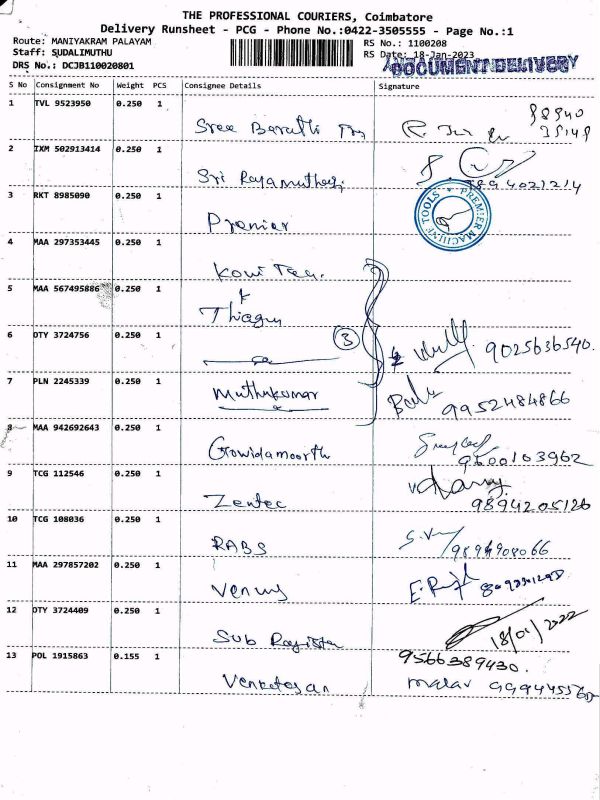 THE PROFESSIONAL COURIERS, Coimbatore
Delivery Runsheet - PCG - Phone No.:0422-3505555 - Page No.:1
Route: MANIYAKRAM PALAYAM
RS No.: 1100208
Staff: SUDALIMUTHU
RS Date: 18-Jan-2023
DRS No.: DCJB110020801
DOCUMENT DELIVERY
S No Consignment No Weight PCS Consignee Details Signature
1 TVL 9523950 0.250 1
Sree Barathi
2 IXM 502913414 0.250 1
Sri
9894021214
3 RKT 8985090 0.250 1
Premier
PREMIER MACHINE TOOLS
4 MAA 297353445 0.250 1
5 MAA 567495886 0.250 1
6 OTY 3724756 0.250 1
3
9025636540.
7 PLN 2245339 0.250 1
Muthukumar
9952484866
8 MAA 942692643 0.250 1
Gowidamoorth
9600103962
9 TCG 112546 0.250 1
Zentec
9894205126
10 TCG 108036 0.250 1
RABS
9894908066
11 MAA 297857202 0.250 1
Venus
12 OTY 3724409 0.250 1
Sub Register
18/01/2022
13 POL 1915863 0.155 1
9566389430.
Venketesan
malar